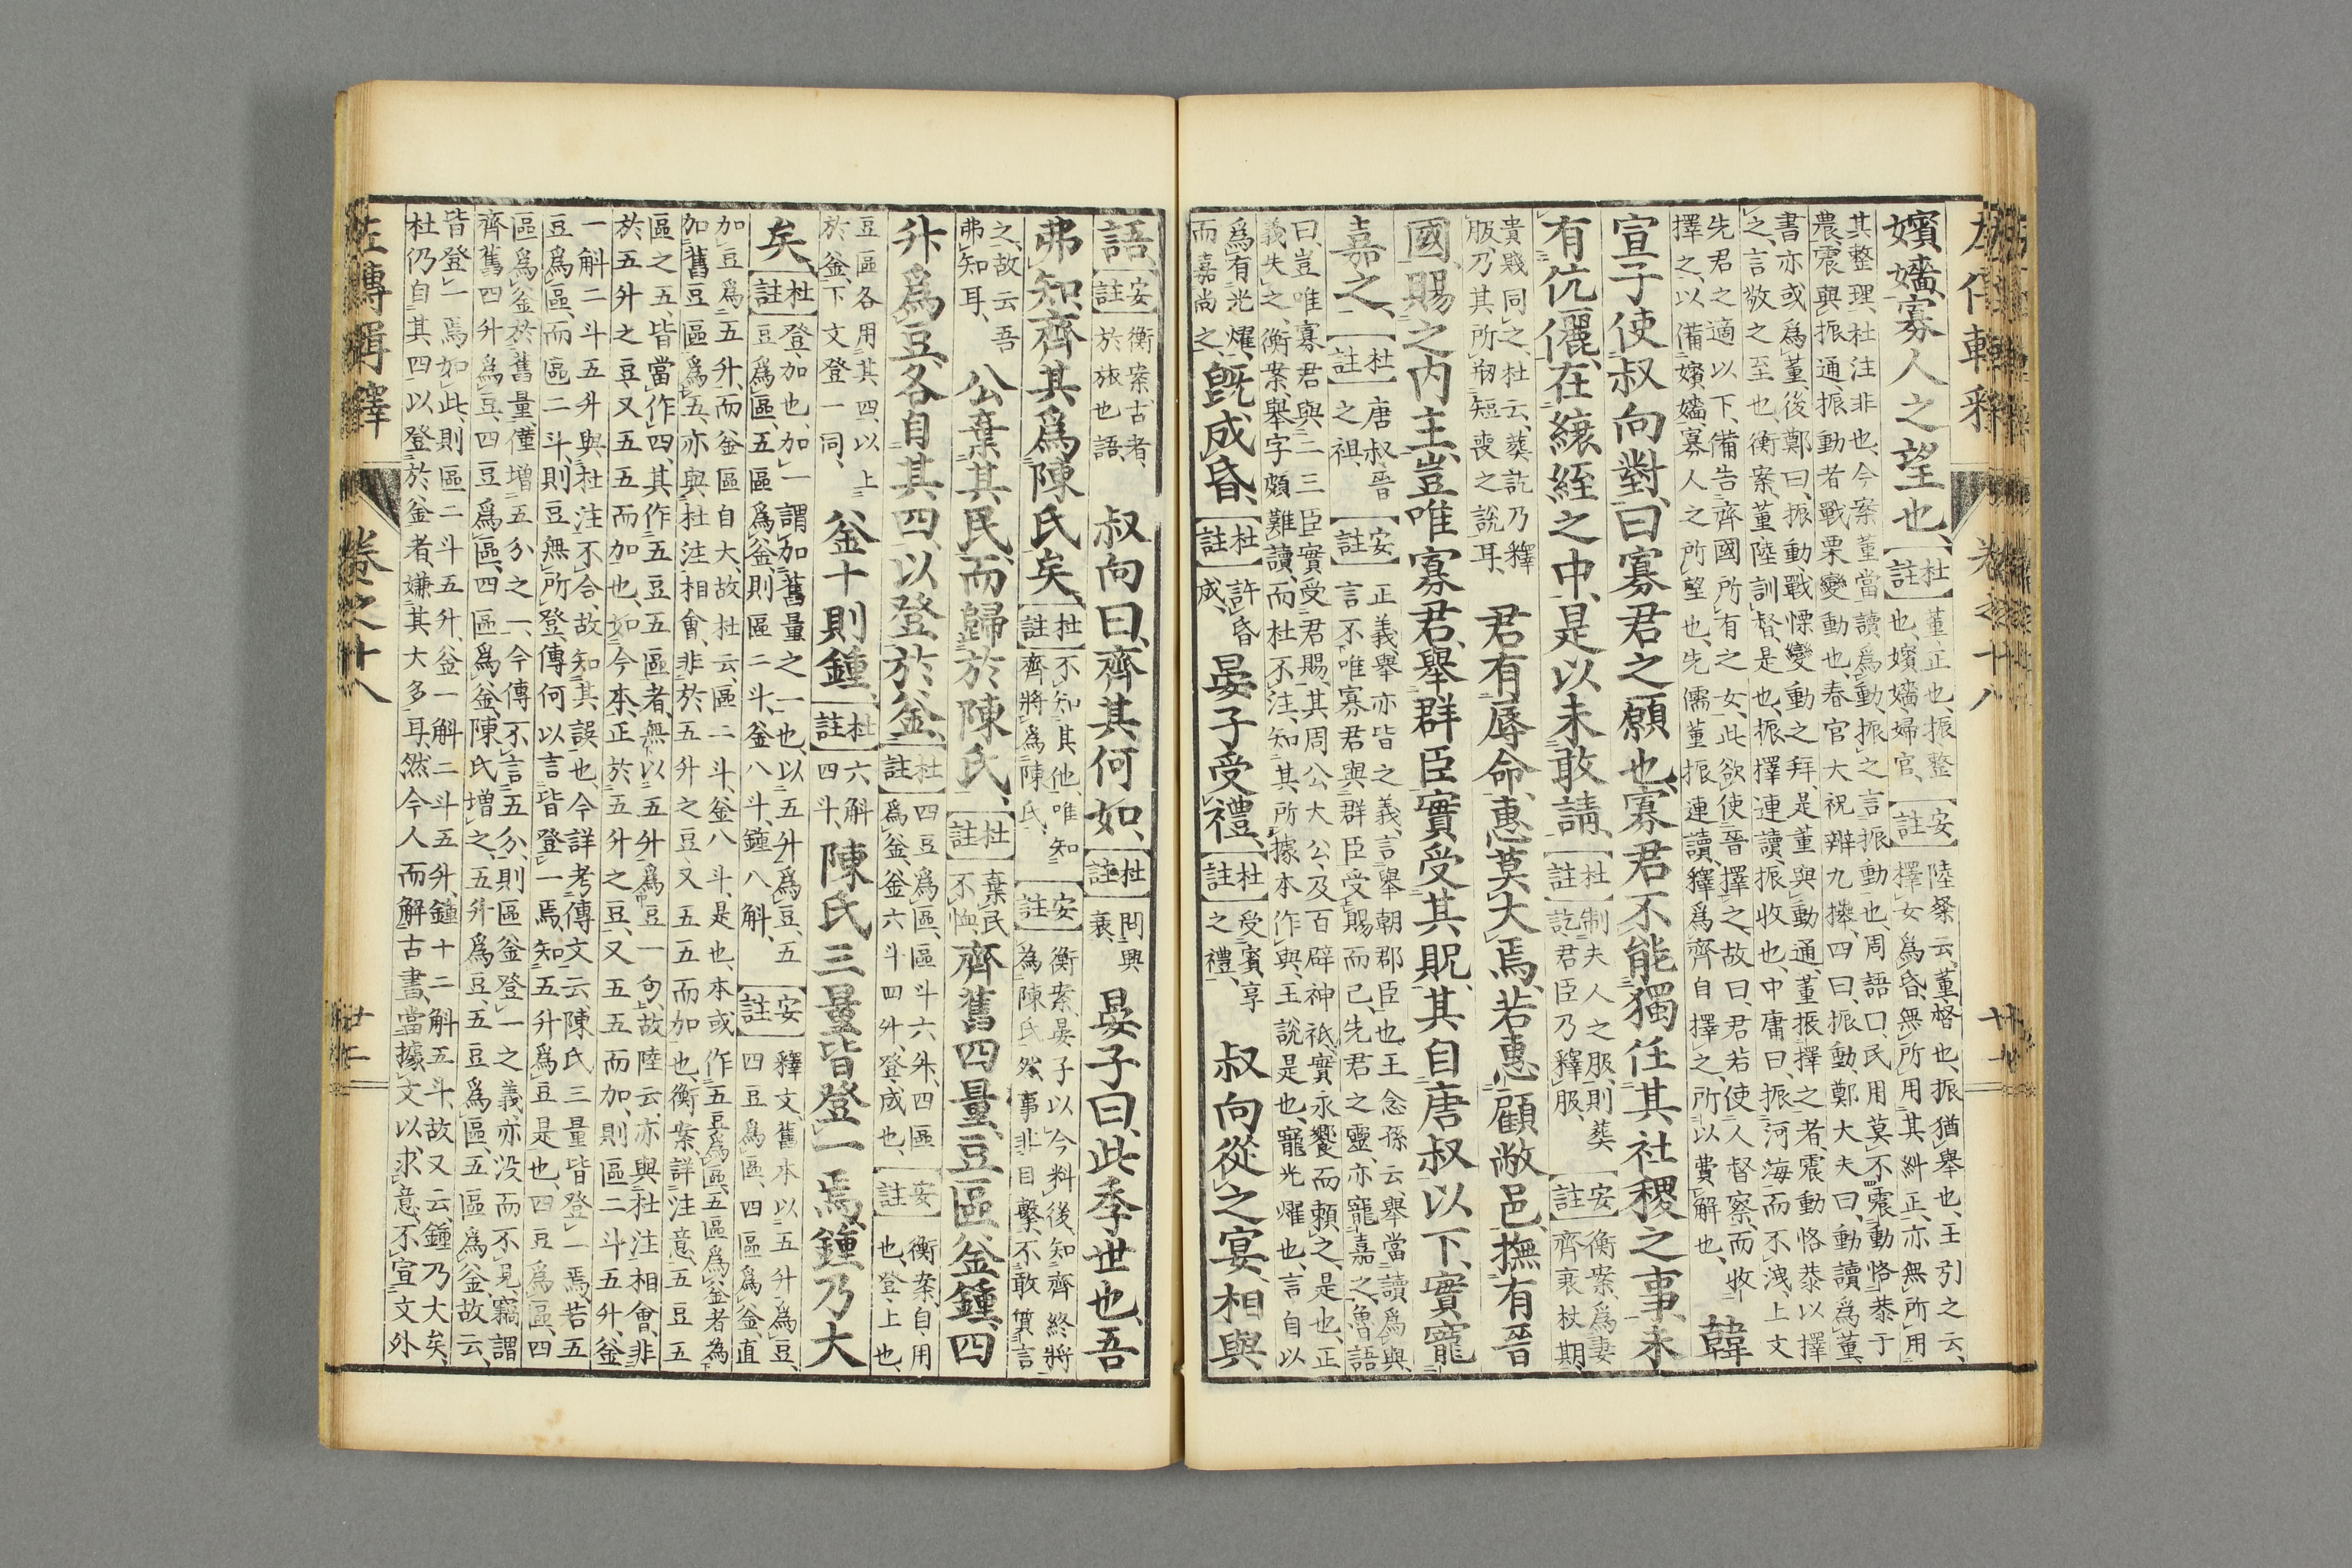 嬪嬙寡人之望也、【杜註】董正也、振整也、嬪嬙婦官、【安註】陸粲云、董督也、振猶舉也、王引之云、擇女爲昏、無所用其糾正、亦無所用
其整理、杜注非也、今案董當讀爲動、振之言振動也、周語曰、民用莫不震動恪恭于農、震與振通、振動者戰栗變動也、春官大祝辨九𢷎、四曰、振動、鄭大夫曰、動讀爲董、
書亦或爲董、後鄭曰、振動、戰慄變動之拜、是董與動通、董振擇之者、震動恪恭以擇之、言敬之至也、衡案、董陸訓督、是也、振擇連讀、振收也、中庸曰、振河海而不洩、上文
先君之適以下、備告齊國所有之女、此欲使晉擇之、故曰、君若使人督察、而收擇之、以備嬪嬙、寡人之所望也、先儒董振連讀、釋爲齊自擇之、所以費解也、韓
宣子使叔向對曰、寡君之願也、寡君不能獨任其社稷之事、未
有伉儷、在縗絰之中、是以未敢請、【杜註】制夫人之服、則葬訖君臣乃釋服、【安註】衡案、爲妻齊衰杖期、
貴賤同之、杜云、葬訖乃釋服、乃其所刱短喪之說耳、君有辱命、惠莫大焉、若惠顧敝邑、撫有晉
國、賜之内主、豈唯寡君、舉群臣實受其貺、其自唐叔以下、實寵
嘉之、【杜註】唐叔、晉之祖、【安註】正義舉亦皆之義、言舉朝郡臣也王念孫云舉當讀爲與、言不唯寡君與群臣受賜而已、先君之靈、亦寵嘉之、魯語
曰、豈唯寡君與二三臣實受君賜、其周公大公、及百辟神祇、實永饗而賴之、是也、正義失之、衡案、舉字頗難讀、而杜不注、知其所據本作與、王說是也、寵光燿也、言自以
爲有光燿、而嘉尚之、旣成昏、【杜註】許昏成、晏子受禮、【杜註】受賓享之禮、叔向從之宴、相與
語、【安註】衡案、古者、於旅也語、叔向曰、齊其何如、【杜註】問興衰、晏子曰、此季世也、吾
弗知齊其爲陳氏矣、【杜註】不知其他、唯知齊將爲陳氏、【安註】衡案、晏子以今料後、知齊終將爲陳氏然事非目擊、不敢質言
之、故云吾弗知耳、公棄其民、而歸於陳氏、【杜註】棄民不恤、齊舊四量、豆區釜鍾、四
升爲豆、各自其四、以登於釜、【杜註】四豆爲區、區斗六升、四區爲釜、釜六斗四升、登成也、【安註】衡案、自用也、登上也、
豆區各用其四、以上於釜、下文登一同、釜十則鍾、【杜註】六斛四斗、陳氏三量皆登一焉、鍾乃大
矣、【杜註】登、加也、加一謂加舊量之一也、以五升爲豆、五豆爲區、五區爲釜、則區二斗、釜八斗、鍾八斛、【安註】釋文、舊本以五升爲豆、四豆爲區、四區爲釜、直
加豆爲五升、而釜區自大、故杜云、區二斗、釜八斗、是也、本或作五豆爲區、五區爲釜者、爲加舊豆區爲五、亦與杜注相會、非於五升之豆、又五五而加也、衡案、詳注意、五豆五
區之五、皆當作四、其作五豆五區者、無以五升爲豆一句、故陸云、亦與杜注相會、非於五升之豆、又五五而加也、如今本、正於五升之豆、又五五而加、則區二斗五升、釜
一斛二斗五升、與杜注不合、故知其誤也、今詳考傳文、云陳氏三量皆登一焉、若五豆爲區、而區二斗、則豆無所登、傳何以言皆登一焉、知五升爲豆是也、四豆爲區、四
區爲釜於舊量、僅增五分之一、今傳不言五分、則區釜登一之義、亦没而不見、竊謂齊舊四升爲豆、四豆爲區、四區爲釜、陳氏增之、五升爲豆、五豆爲區、五區爲釜、故云、
皆登一焉、如此、則區二斗五升、釜一斛二斗五升、鍾十二斛五斗、故又云、鍾乃大矣、杜仍自其四以登於釜者、嫌其大多耳、然今人而解古書、當據文以求意、不宣文外
左傳輯釋　卷之十八　廿二